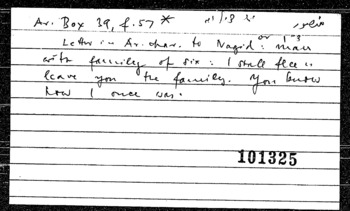 Ar. Box 39, f. 57 *
Letter in Ar. char. to Nagid: man
with family of six: I shall flee &
leave you the family. You know
how I once was.
101325